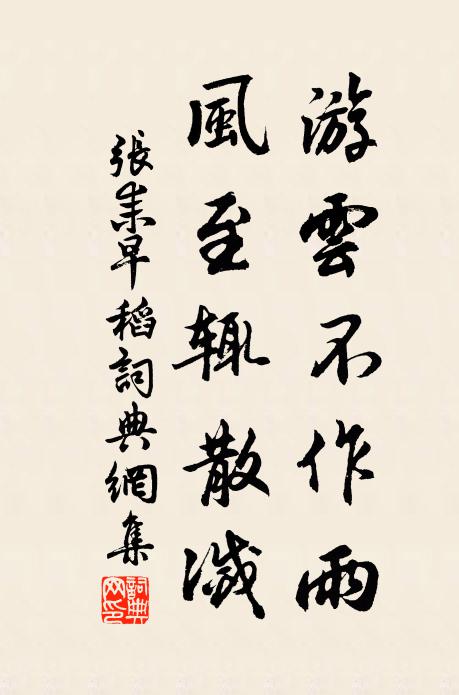 游雲不作雨
風至辄散滅
張耒早稻詞典網集
詞典
网印